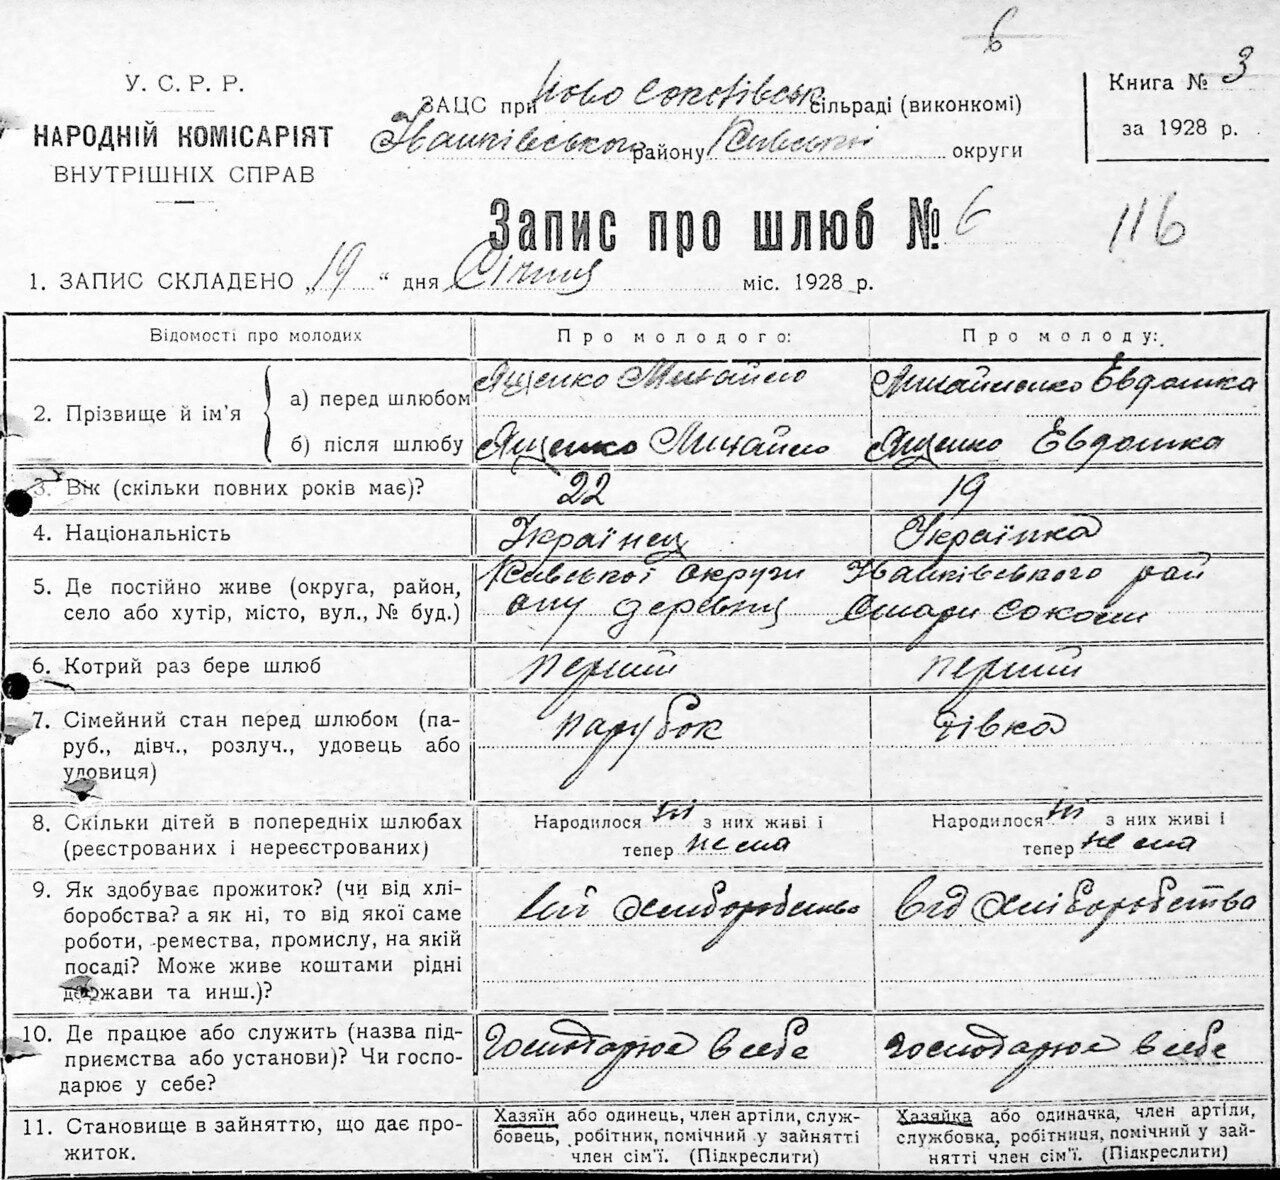 6
У. С. Р. Р.
НАРОДНІЙ КОМІСАРІЯТ
ВНУТРІШНІХ СПРАВ
ЗАЦС при Ново Соколівськ сільраді (виконкомі)
Іванківського району Київської округи
Книга № 3
за 1928 р.
Запис про шлюб № 6
116
1. ЗАПИС СКЛАДЕНО „19“ дня Січня міс. 1928 р.
Відомості про молодих
Про молодого:
Про молоду:
2. Прізвище й ім’я
а) перед шлюбом
Ященко Михайло
Михайленко Евдошка
б) після шлюбу
Ященко Михайло
Ященко Евдошка
3. Вік (скільки повних років має)?
22
19
4. Національність
Українец
Українка
5. Де постійно живе (округа, район,
село або хутір, місто, вул., № буд.)
Київської округи Іванківського рай
ону деревня Стари Соколи
6. Котрий раз бере шлюб
перший
перший
7. Сімейний стан перед шлюбом (па-
руб., дівч., розлуч., удовець або
удовиця)
парубок
дівка
8. Скільки дітей в попередніх шлюбах
(реєстрованих і нереєстрованих)
Народилося ні з них живі і
тепер не ма
Народилося ні з них живі і
тепер не ма
9. Як здобуває прожиток? (чи від хлі-
боробства? а як ні, то від якої саме
роботи, ремества, промислу, на якій
посаді? Може живе коштами рідні
держави та инш.)?
від хліборобства
від хліборобства
10. Де працює або служить (назва під-
приємства або установи)? Чи госпо-
дарює у себе?
Господарює в себе
Господарює в себе
11. Становище в зайняттю, що дає про-
житок.
Хазяїн або одинець, член артіли, служ-
бовець, робітник, помічний у зайнятті
член сім’ї. (Підкреслити)
Хазяйка або одиначка, член артіли,
службовка, робітниця, помічний у зай-
нятті член сім’ї. (Підкреслити)